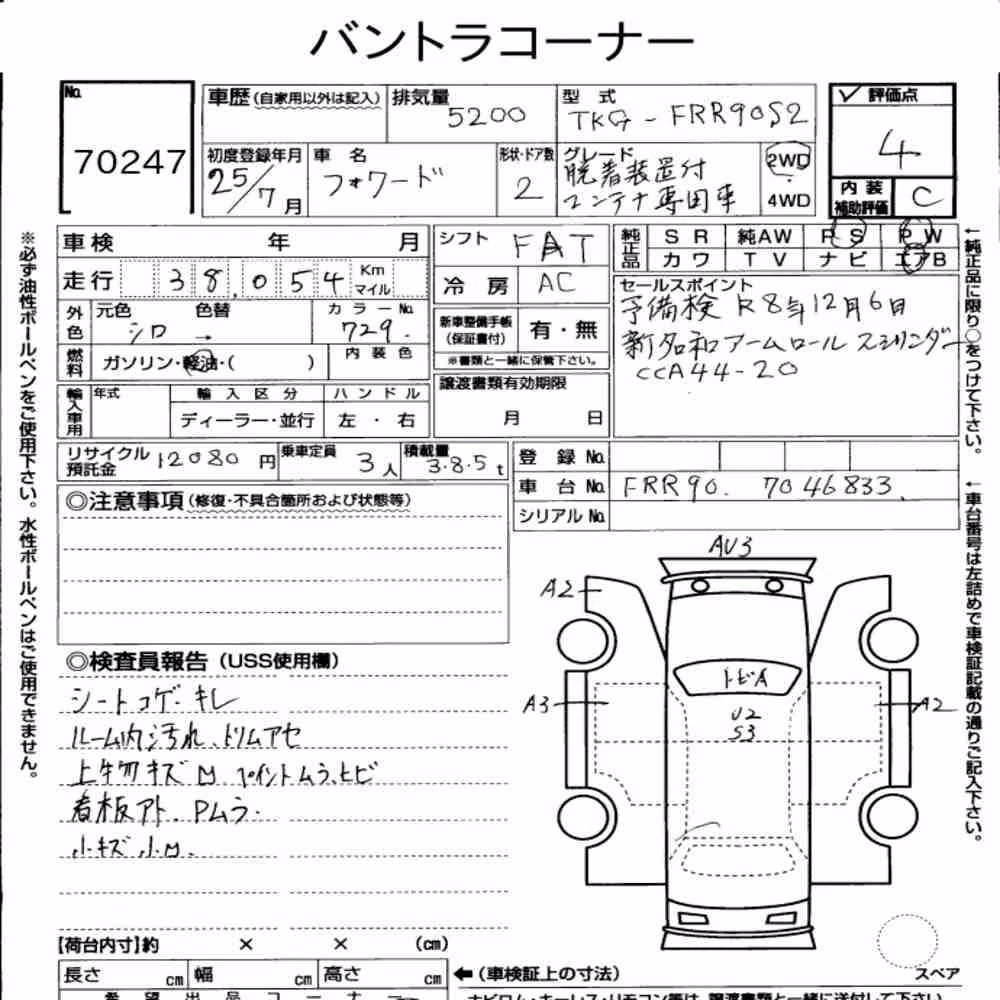 バントラコーナー
No.
70247
車歴(自家用以外は記入)
排気量
5200
型式
TKG-FRR90S2
評価点
4
内装
補助評価
C
初度登録年月
25/7月
車名
フォワード
形状・ドア数
2
グレード
脱着装置付
コンテナ専用車
2WD
4WD
※必ず油性ボールペンをご使用下さい。水性ボールペンはご使用できません。
車検 年 月
走行 38,054 Km マイル
外色
元色 シロ
色替 →
カラーNo. 729
燃料
ガソリン・軽油・( )
内装色
輸入車用
年式
輸入区分
ディーラー・並行
ハンドル
左・右
シフト FAT
冷房 AC
新車整備手帳(保証書付)
有・無
※書類と一緒に保管下さい。
譲渡書類有効期限
月 日
純正品
SR 純AW PS PW
カワ TV ナビ エアB
セールスポイント
予備検 R8年12月6日
新明和アームロール スミリンダー
CCA44-20
←純正品に限り○をつけて下さい。
リサイクル預託金 12080円
乗車定員 3人
積載量 3.85t
登録No.
車台No. FRR90. 7046833.
シリアルNo.
←車台番号は左詰めで車検証記載の通りご記入下さい。
◎注意事項(修復・不具合箇所および状態等)
◎検査員報告(USS使用欄)
シートコゲ・キレ
ルーム内汚れ、トリムアセ
上物キズ凹 ペイントムラ、ヒビ
看板アト、Pムラ.
小キズ小凹.
AU3
A2
トビA
A3
U2
S3
A2
スペア
【荷台内寸】約 × × (cm)
長さ cm 幅 cm 高さ cm
←(車検証上の寸法)
希望出品コーナー